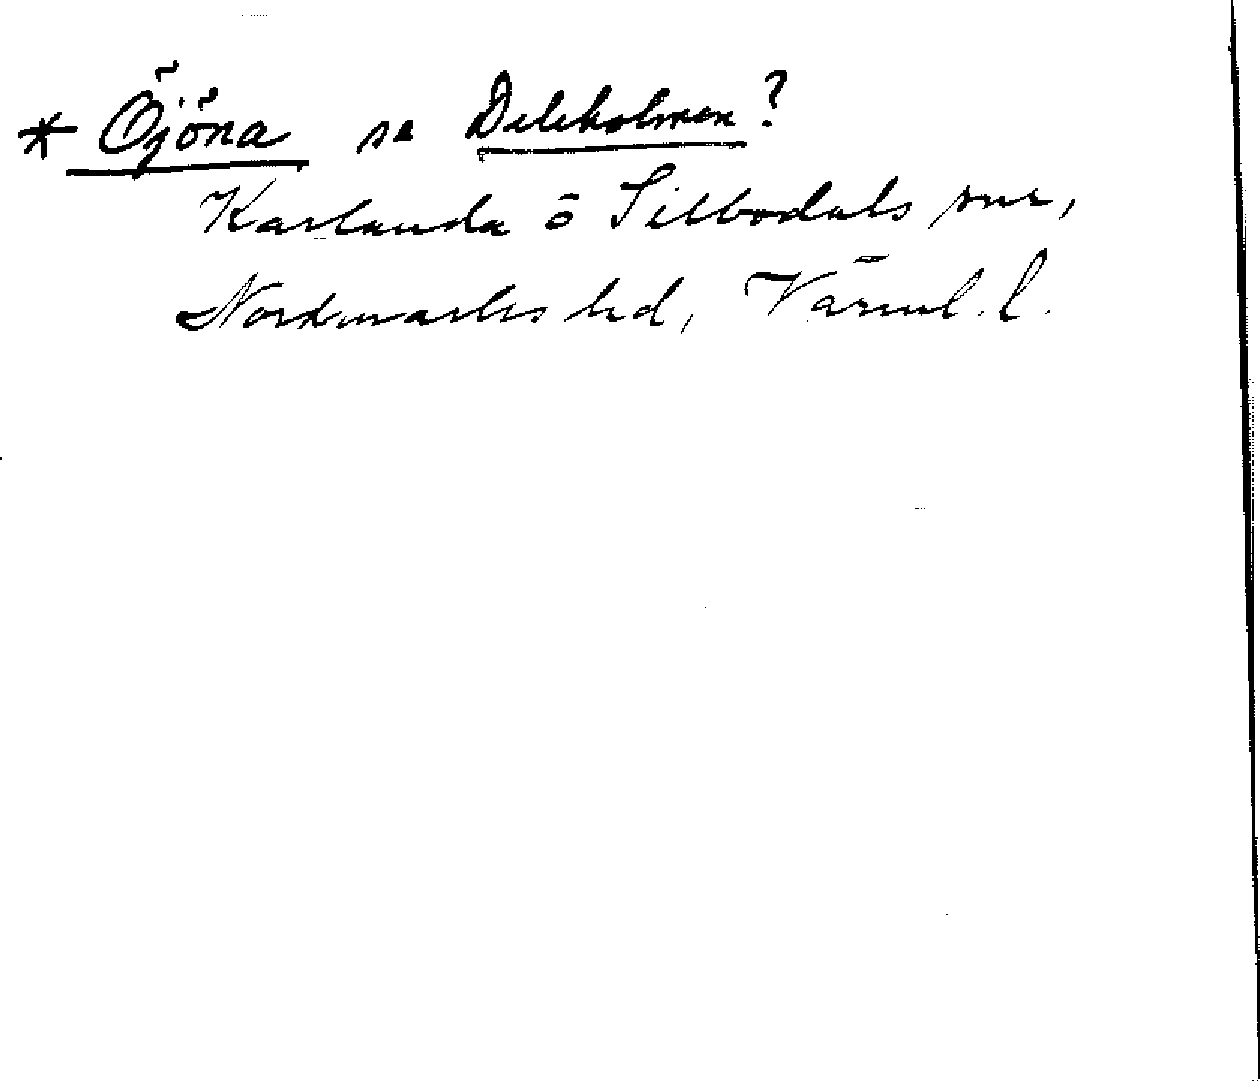 * Öjöna se Deleholmen?
Karlanda o Silbodals snr,
Nordmarks hd, Värml. l.